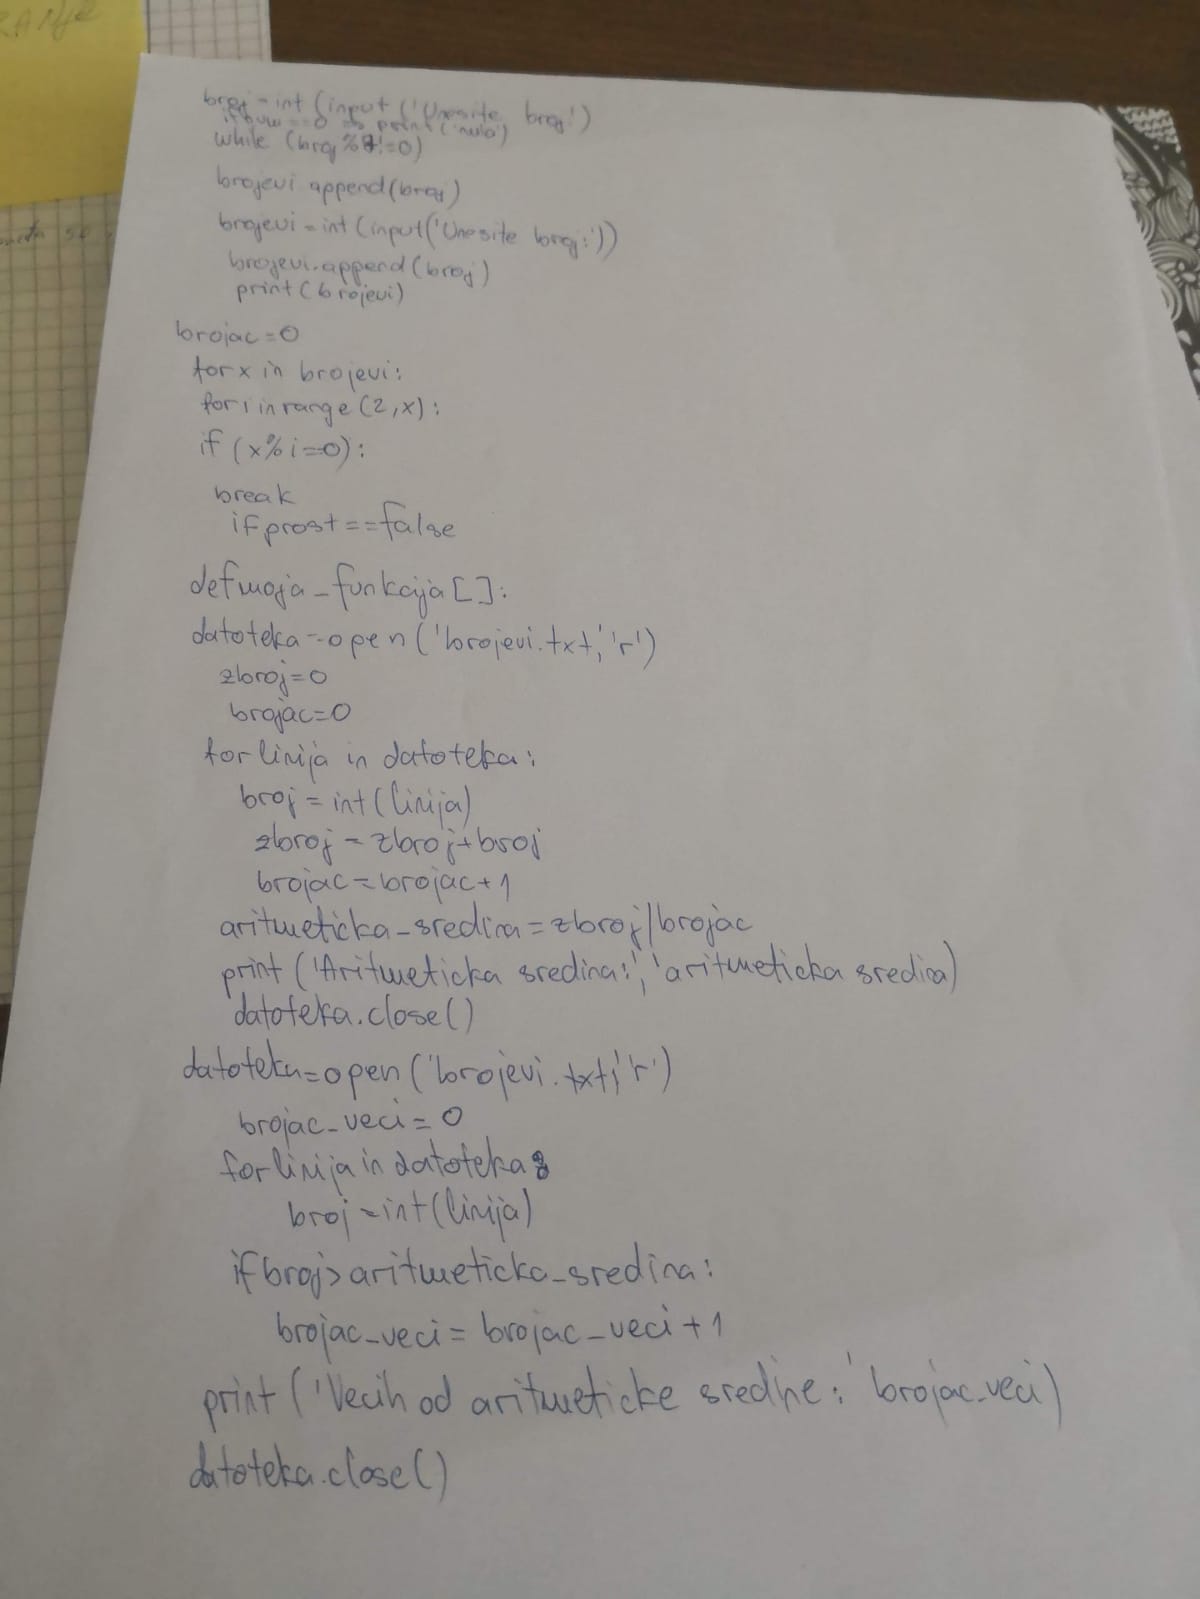 RANJE
broj=int(input('Unesite broj!')
if num==0 => print('nula')
while (broj%7!=0)
brojevi append(broj)
brojevi=int(input('Unesite broj:'))
brojevi.append(broj)
print(brojevi)
brojac=0
for x in brojevi:
for i in range(2,x):
if (x%i=0):
break
if prost==false
def moja_funkcija[]:
datoteka=open('brojevi.txt,'r')
zbroj=0
brojac=0
for linija in datoteka:
broj=int(linija)
zbroj=zbroj+broj
brojac=brojac+1
aritmeticka_sredina=zbroj/brojac
print('Aritmeticka sredina:','aritmeticka sredina)
datoteka.close()
datoteka=open('brojevi.txt,'r')
brojac_veci=0
for linija in datoteka:
broj=int(linija)
if broj>aritmeticka_sredina:
brojac_veci=brojac_veci+1
print('Vecih od aritmeticke sredine:' brojac_veci)
datoteka.close()